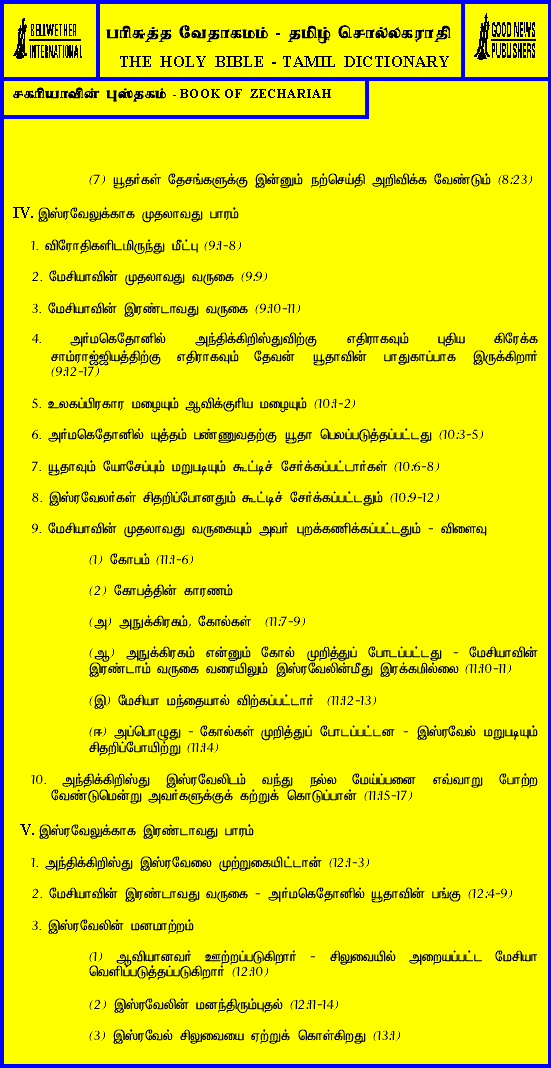 BELLWETHER
INTERNATIONAL
பரிசுத்த வேதாகமம் - தமிழ் சொல்லகராதி
THE HOLY BIBLE - TAMIL DICTIONARY
GOOD NEWS
PUBLISHERS
சகரியாவின் புஸ்தகம் - BOOK OF ZECHARIAH
(7) யூதர்கள் தேசங்களுக்கு இன்னும் நற்செய்தி அறிவிக்க வேண்டும் (8:23)
IV. இஸ்ரவேலுக்காக முதலாவது பாரம்
1. விரோதிகளிடமிருந்து மீட்பு (9:1-8)
2. மேசியாவின் முதலாவது வருகை (9:9)
3. மேசியாவின் இரண்டாவது வருகை (9:10-11)
4. அர்மகெதோனில் அந்திக்கிறிஸ்துவிற்கு எதிராகவும் புதிய கிரேக்க
சாம்ராஜ்ஜியத்திற்கு எதிராகவும் தேவன் யூதாவின் பாதுகாப்பாக இருக்கிறார்
(9:12-17)
5. உலகப்பிரகார மழையும் ஆவிக்குரிய மழையும் (10:1-2)
6. அர்மகெதோனில் யுத்தம் பண்ணுவதற்கு யூதா பெலப்படுத்தப்பட்டது (10:3-5)
7. யூதாவும் யோசேப்பும் மறுபடியும் கூட்டிச் சேர்க்கப்பட்டார்கள் (10:6-8)
8. இஸ்ரவேலர்கள் சிதறிப்போனதும் கூட்டிச் சேர்க்கப்பட்டதும் (10:9-12)
9. மேசியாவின் முதலாவது வருகையும் அவர் புறக்கணிக்கப்பட்டதும் - விளைவு
(1) கோபம் (11:1-6)
(2) கோபத்தின் காரணம்
(அ) அநுக்கிரகம், கோல்கள் (11:7-9)
(ஆ) அநுக்கிரகம் என்னும் கோல் முறித்துப் போடப்பட்டது - மேசியாவின்
இரண்டாம் வருகை வரையிலும் இஸ்ரவேலின்மீது இரக்கமில்லை (11:10-11)
(இ) மேசியா மந்தையால் விற்கப்பட்டார் (11:12-13)
(ஈ) அப்பொழுது - கோல்கள் முறித்துப் போடப்பட்டன - இஸ்ரவேல் மறுபடியும்
சிதறிப்போயிற்று (11:14)
10. அந்திக்கிறிஸ்து இஸ்ரவேலிடம் வந்து நல்ல மேய்ப்பனை எவ்வாறு போற்ற
வேண்டுமென்று அவர்களுக்குக் கற்றுக் கொடுப்பான் (11:15-17)
V. இஸ்ரவேலுக்காக இரண்டாவது பாரம்
1. அந்திக்கிறிஸ்து இஸ்ரவேலை முற்றுகையிட்டான் (12:1-3)
2. மேசியாவின் இரண்டாவது வருகை - அர்மகெதோனில் யூதாவின் பங்கு (12:4-9)
3. இஸ்ரவேலின் மனமாற்றம்
(1) ஆவியானவர் ஊற்றப்படுகிறார் - சிலுவையில் அறையப்பட்ட மேசியா
வெளிப்படுத்தப்படுகிறார் (12:10)
(2) இஸ்ரவேலின் மனந்திரும்புதல் (12:11-14)
(3) இஸ்ரவேல் சிலுவையை ஏற்றுக் கொள்கிறது (13:1)